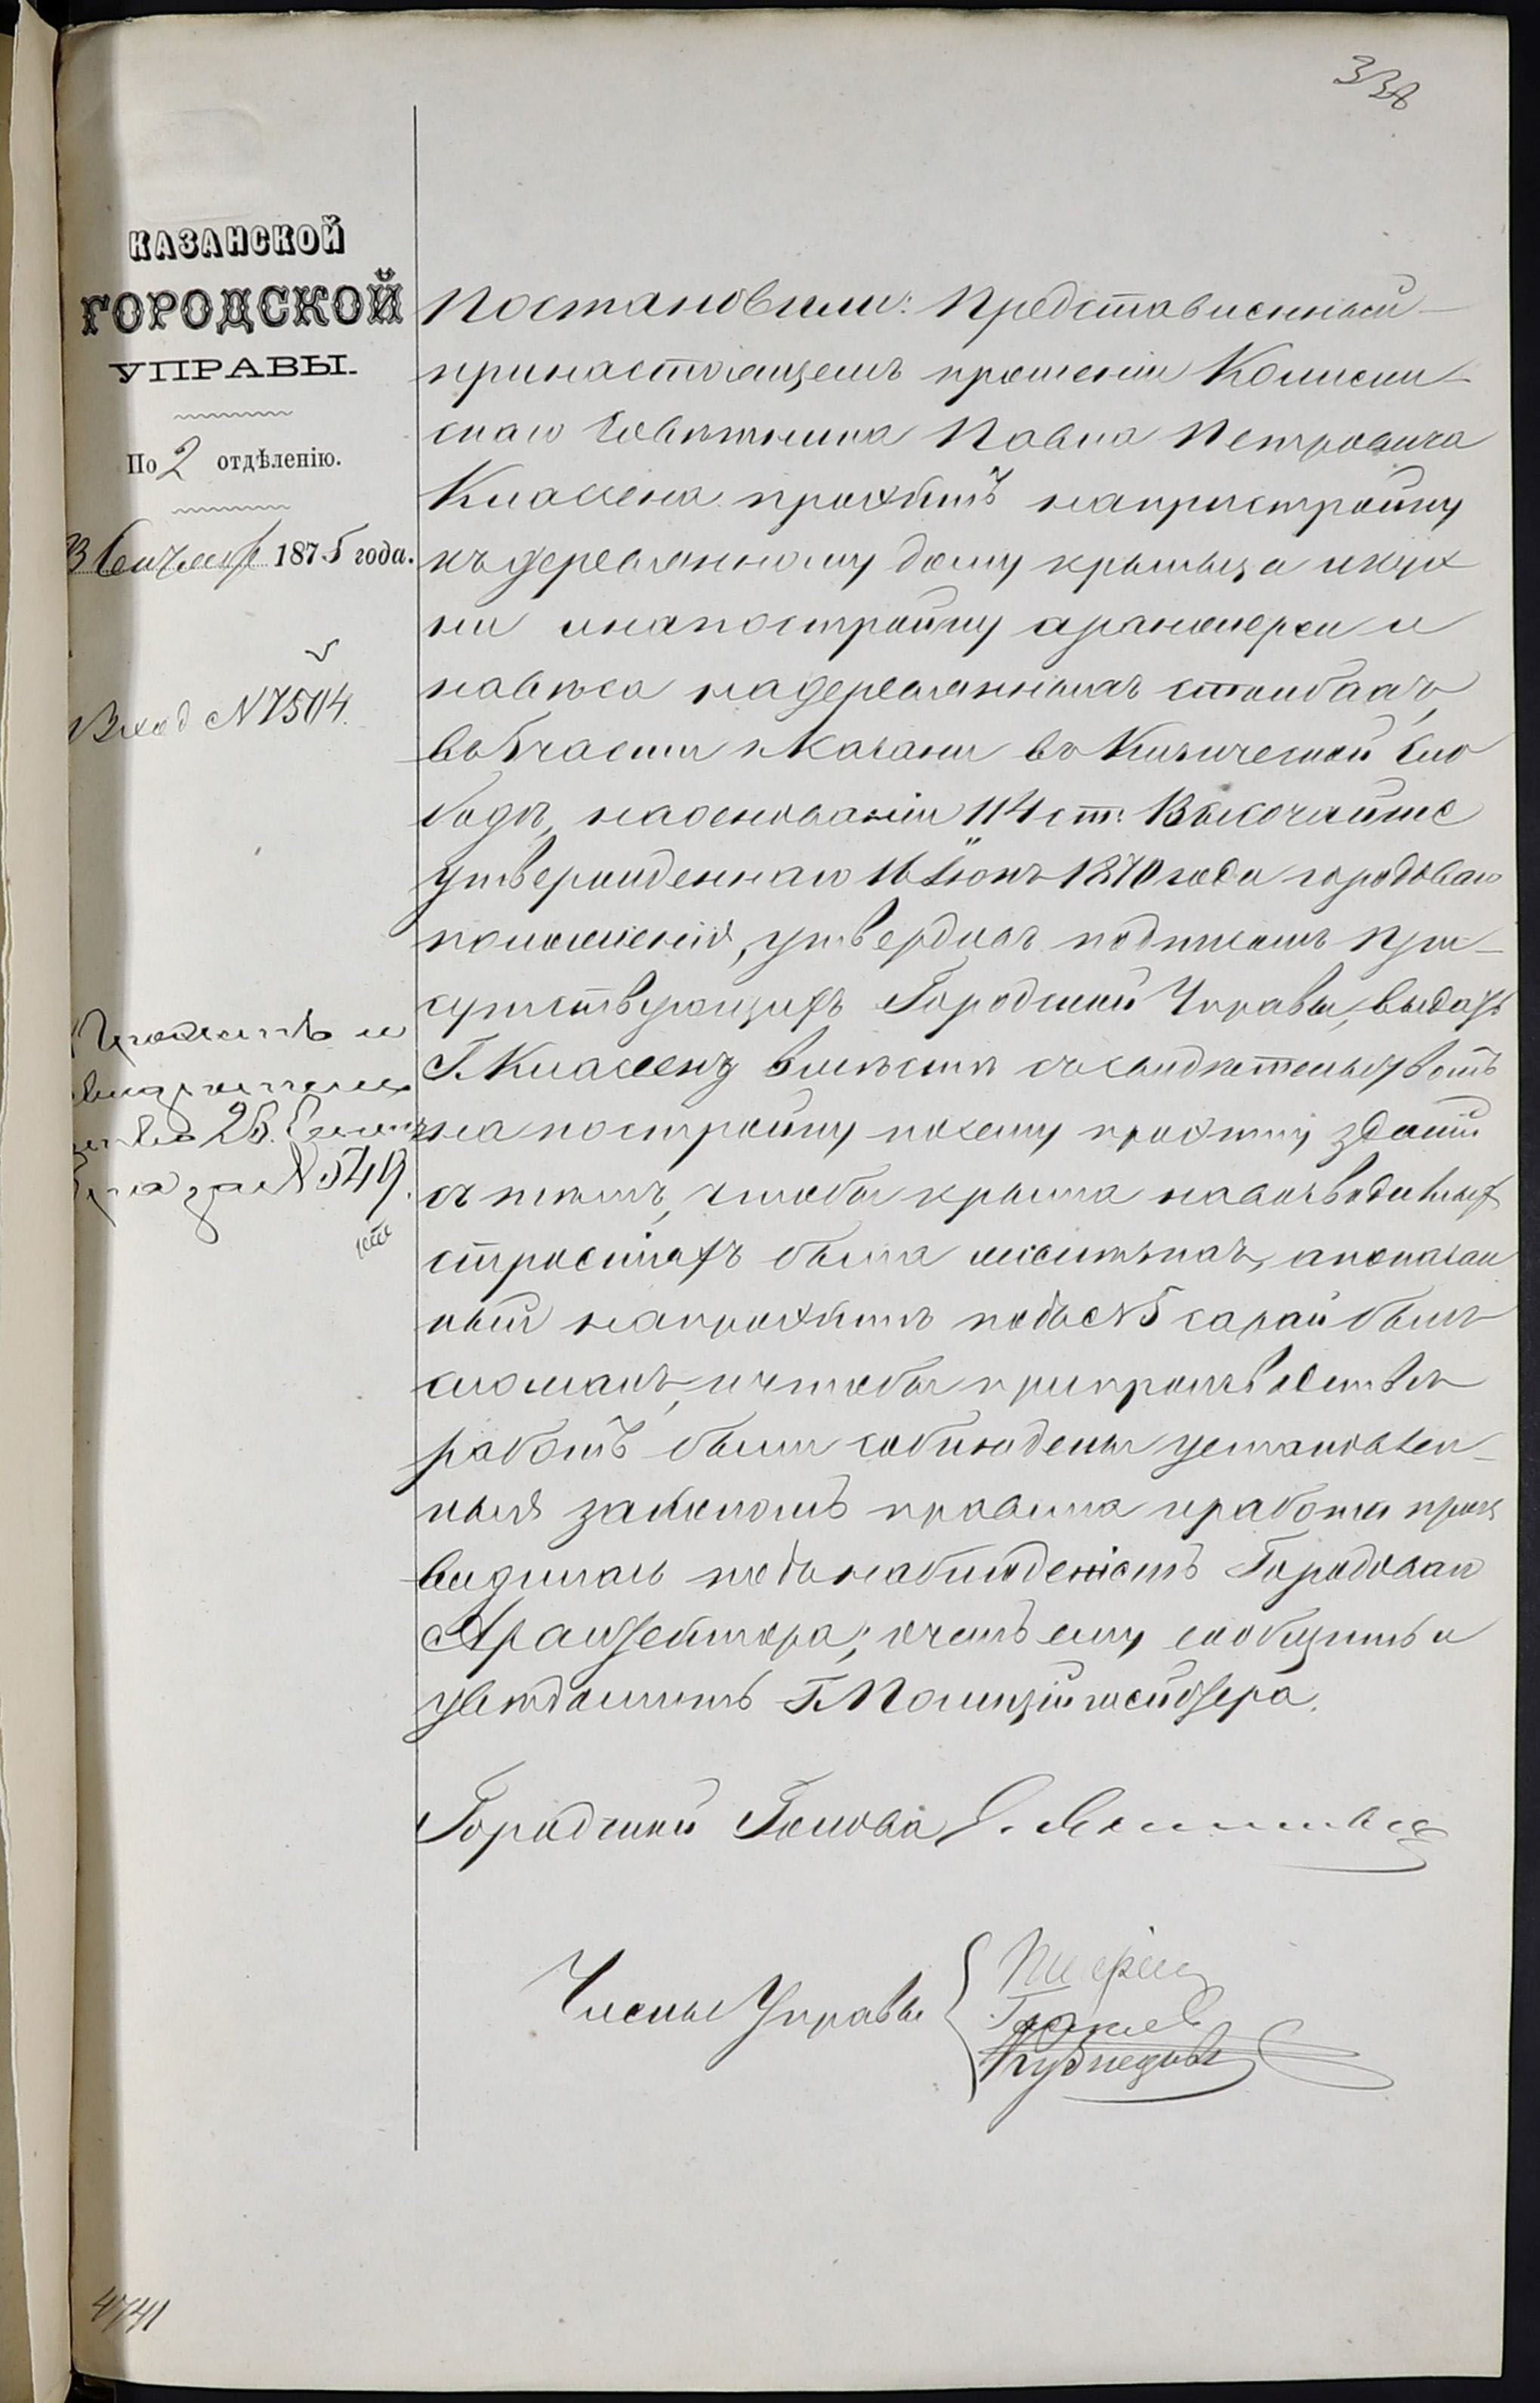 338
КАЗАНСКОЙ
ГОРОДСКОЙ
УПРАВЫ.
По 2 отдѣленію.
1875 года.
Вход № 7504.
исполнено 23
за № 549.
Постановили: Представленный
при настоящемъ прошеніи Коллеж-
скаго Совѣтника Павла Петровича
Классена проэктъ на пристройку
къ деревянному дому крыльца и кух
ни и на постройку аранжереи и
навѣса на деревянныхъ столбахъ,
въ 5 части г. Казани въ Кизической Сло
бодѣ, на основаніи 114 ст. Высочайше
утвержденнаго 16 Іюнѣ 1870 года городоваго
положенія, утвердивъ подписомъ при-
сутствующихъ Городской Управы, выдать
Г. Классену вмѣстѣ съ свидѣтельствомъ
на постройку по сему проэкту зданій
съ тѣмъ, чтобы крыша на возводимыхъ
строеніяхъ была желѣзная, а показан
ный на проэктѣ подъ № 5 сарай былъ
сломанъ, и чтобы при производствѣ
работъ были соблюдены установлен-
ныя закономъ правила и работы произ
водились подъ наблюденіемъ Городоваго
Архитектора; о чемъ ему сообщить и
увѣдомить Г. Полиціймейстера.
Городской Голова
Члены Управы
Кузнецовъ
4741